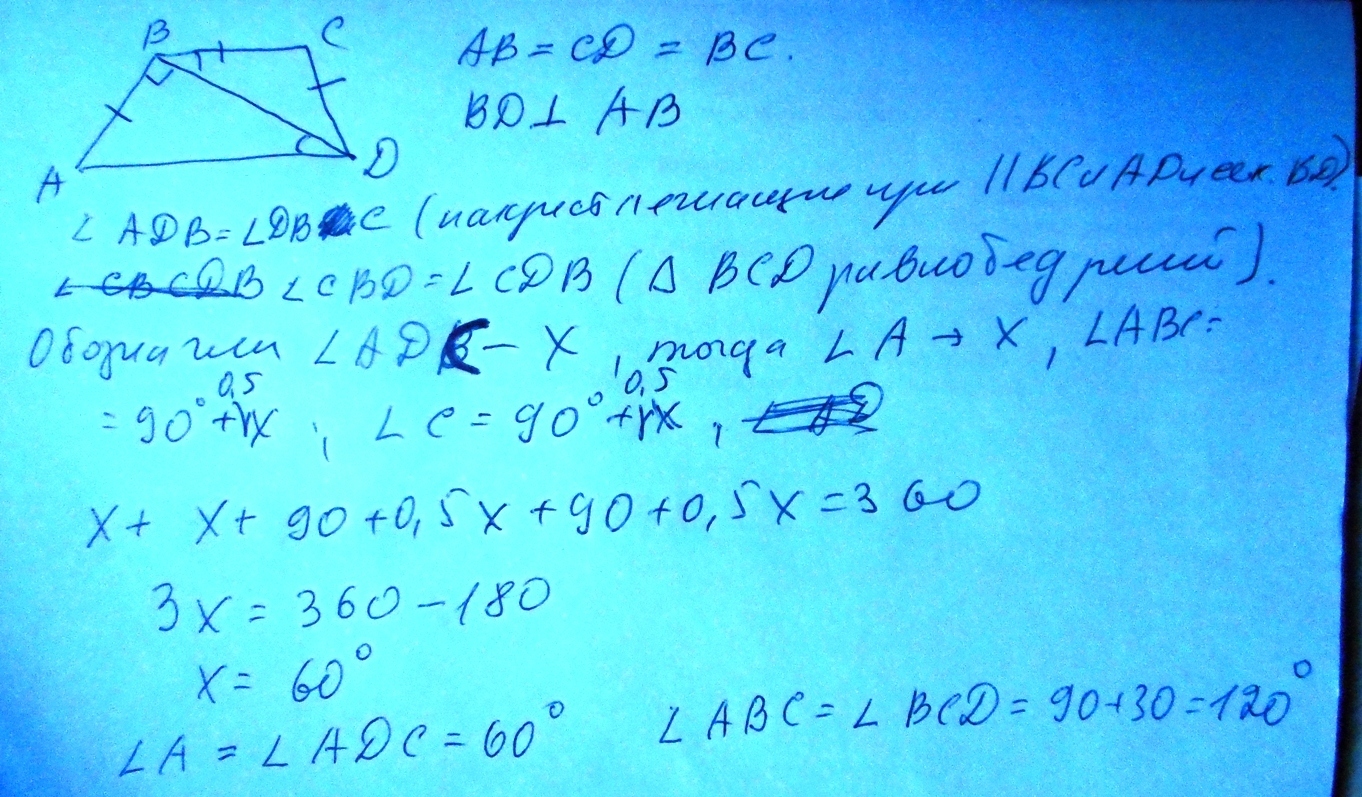 B C
A D
AB = CD = BC.
BD ⊥ AB
∠ ADB = ∠DBC (накрест лежащие при || BC и AD и сек. BD).
∠ CBD = ∠ CDB (Δ BCD равнобедрений).
Обозначим ∠ ADC – X, тогда ∠ A → X, ∠ABC =
= 90° + 0,5X, ∠ C = 90° + 0,5X,
X + X + 90 + 0,5X + 90 + 0,5X = 360
3X = 360 – 180
X = 60°
∠ A = ∠ ADC = 60° ∠ ABC = ∠ BCD = 90 + 30 = 120°